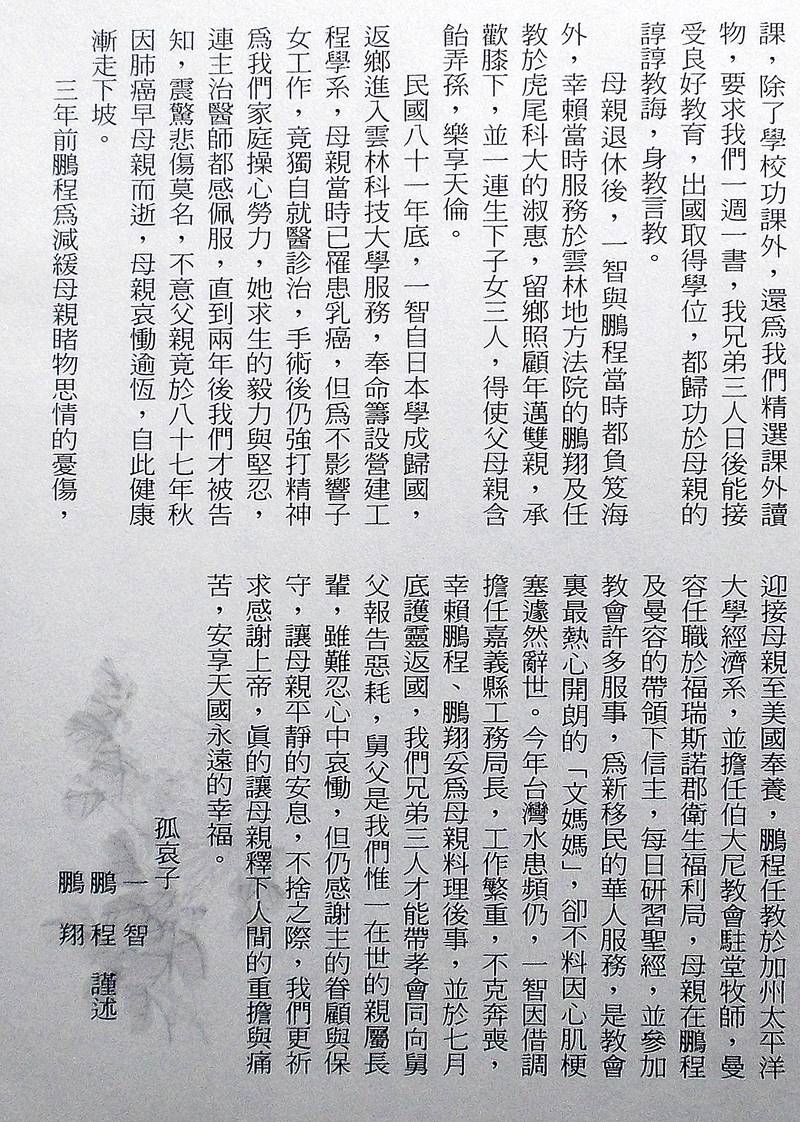 課，除了學校功課外，還為我們精選課外讀
物，要求我們一週一書，我兄弟三人日後能接
受良好教育，出國取得學位，都歸功於母親的
諄諄教誨，身教言教。
母親退休後，一智與鵬程當時都負笈海
外，幸賴當時服務於雲林地方法院的鵬翔及任
教於虎尾科大的淑惠，留鄉照顧年邁雙親，承
歡膝下，並一連生下子女三人，得使父母親含
飴弄孫，樂享天倫。
民國八十一年底，一智自日本學成歸國，
返鄉進入雲林科技大學服務，奉命籌設營建工
程學系，母親當時已罹患乳癌，但為不影響子
女工作，竟獨自就醫診治，手術後仍強打精神
為我們家庭操心勞力，她求生的毅力與堅忍，
連主治醫師都感佩服，直到兩年後我們才被告
知，震驚悲傷莫名，不意父親竟於八十七年秋
因肺癌早母親而逝，母親哀慟逾恆，自此健康
漸走下坡。
三年前鵬程為減緩母親睹物思情的憂傷，
迎接母親至美國奉養，鵬程任教於加州太平洋
大學經濟系，並擔任伯大尼教會駐堂牧師，曼
容任職於福瑞斯諾郡衛生福利局，母親在鵬程
及曼容的帶領下信主，每日研習聖經，並參加
教會許多服事，為新移民的華人服務，是教會
裏最熱心開朗的「文媽媽」，卻不料因心肌梗
塞遽然辭世。今年台灣水患頻仍，一智因借調
擔任嘉義縣工務局長，工作繁重，不克奔喪，
幸賴鵬程、鵬翔妥為母親料理後事，並於七月
底護靈返國，我們兄弟三人才能帶孝會同向舅
父報告惡耗，舅父是我們惟一在世的親屬長
輩，雖難忍心中哀慟，但仍感謝主的眷顧與保
守，讓母親平靜的安息，不捨之際，我們更祈
求感謝上帝，真的讓母親釋下人間的重擔與痛
苦，安享天國永遠的幸福。
孤哀子
一智
鵬程 謹述
鵬翔